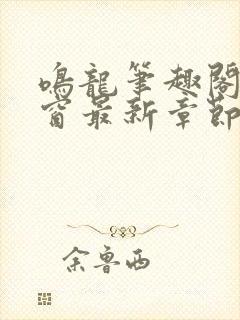 鳴龍筆趣閣
窗最新章節
余魯西